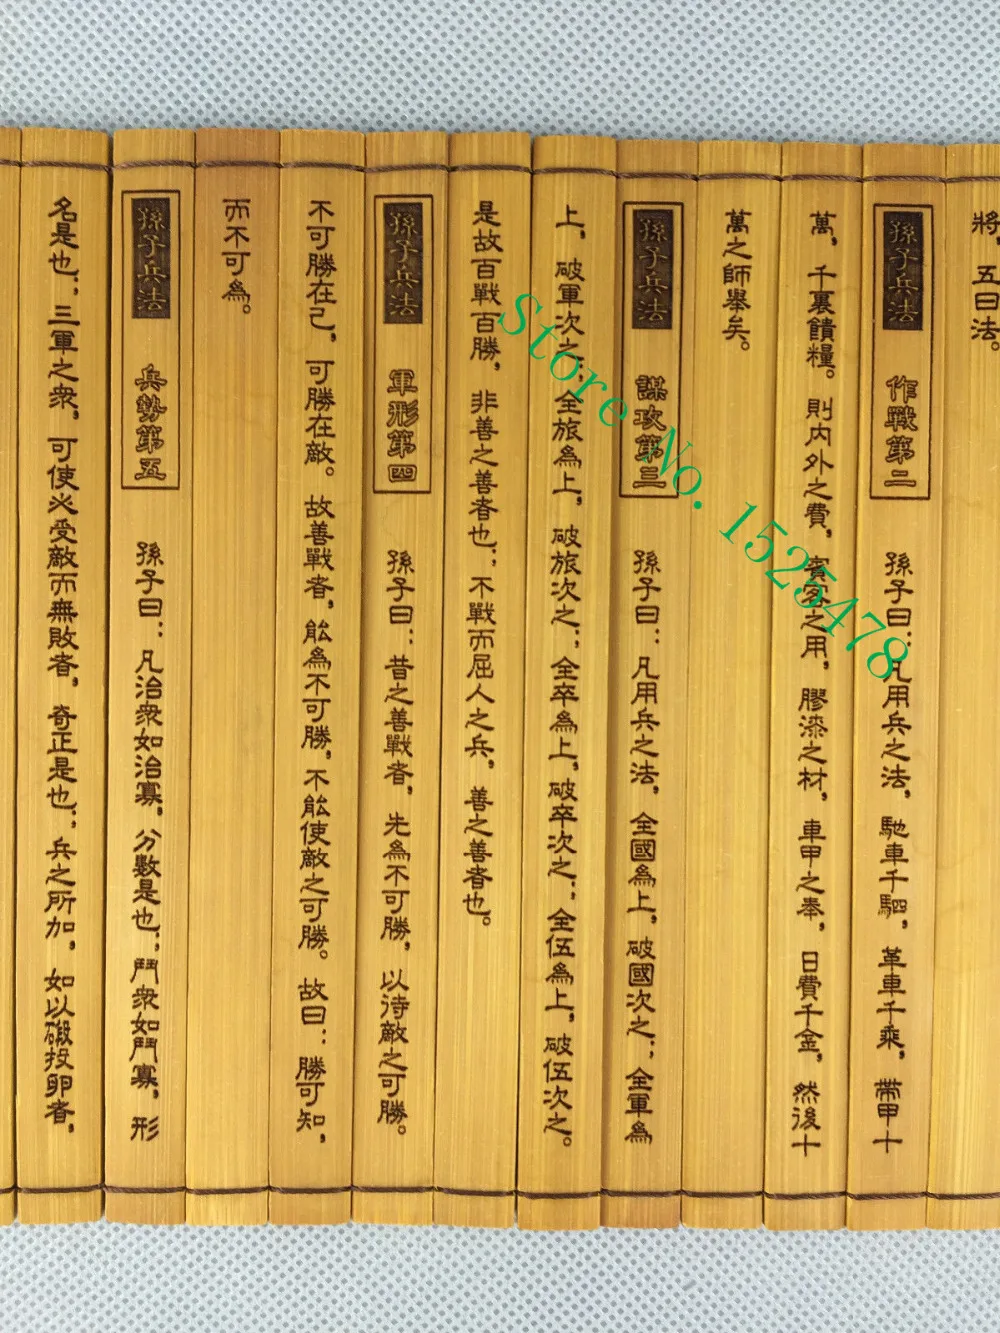 將，五曰法。
孫子兵法 作戰第二 孫子曰：凡用兵之法，馳車千駟，革車千乘，帶甲十
萬，千裏饋糧。則內外之費，賓客之用，膠漆之材，車甲之奉，日費千金，然後十
萬之師舉矣。
孫子兵法 謀攻第三 孫子曰：凡用兵之法，全國為上，破國次之；全軍為
上，破軍次之；全旅為上，破旅次之；全卒為上，破卒次之；全伍為上，破伍次之。
是故百戰百勝，非善之善者也；不戰而屈人之兵，善之善者也。
孫子兵法 軍形第四 孫子曰：昔之善戰者，先為不可勝，以待敵之可勝。
不可勝在己，可勝在敵。故善戰者，能為不可勝，不能使敵之可勝。故曰：勝可知，
而不可為。
孫子兵法 兵勢第五 孫子曰：凡治衆如治寡，分數是也；鬥衆如鬥寡，形
名是也；三軍之衆，可使必受敵而無敗者，奇正是也；兵之所加，如以碫投卵者，
Store No. 1525478